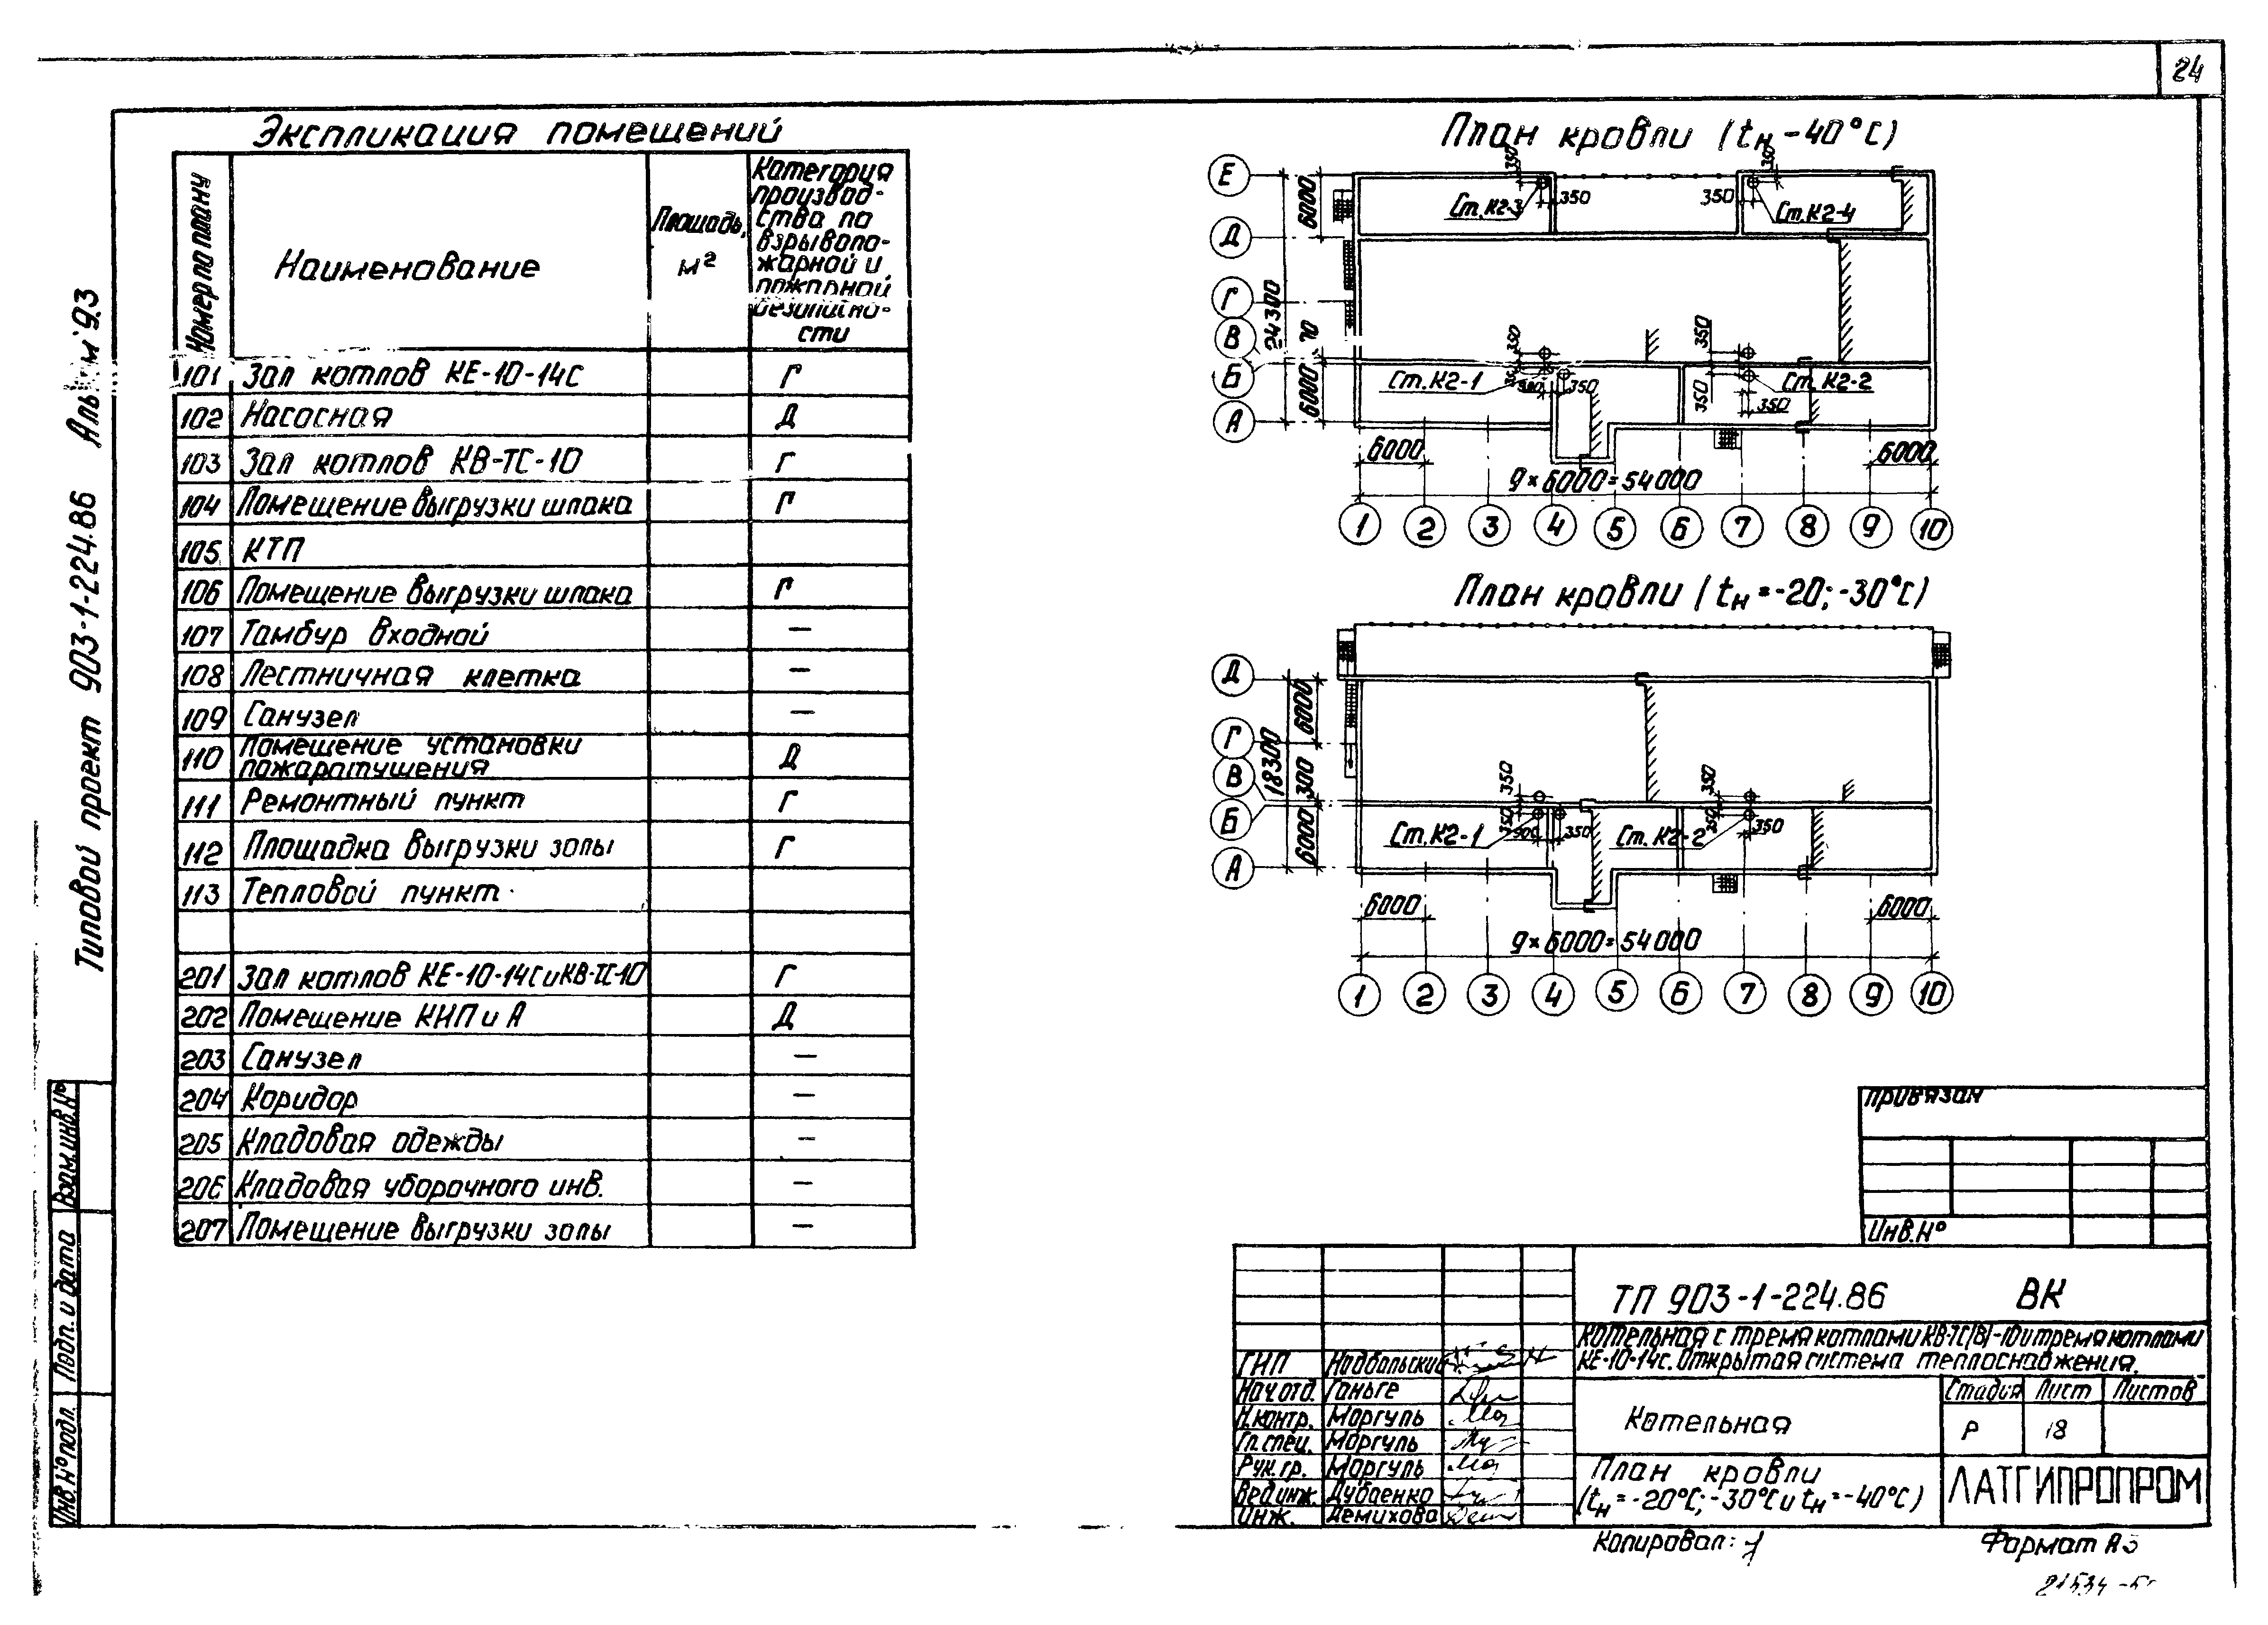 24
Экспликация помещений
Номер по плану
Наименование
Площадь,
м²
Категория
производ-
ства по
взрывопо-
жарной и
пожарной
безопасно-
сти
101 Зал котлов КЕ-10-14С Г
102 Насосная Д
103 Зал котлов КВ-ТС-10 Г
104 Помещение выгрузки шлака Г
105 КТП
106 Помещение выгрузки шлака Г
107 Тамбур входной —
108 Лестничная клетка —
109 Санузел —
110 Помещение установки
пожаротушения Д
111 Ремонтный пункт Г
112 Площадка выгрузки золы Г
113 Тепловой пункт
201 Зал котлов КЕ-10-14С и КВ-ТС-10 Г
202 Помещение КИП и А Д
203 Санузел —
204 Коридор —
205 Кладовая одежды —
206 Кладовая уборочного инв. —
207 Помещение выгрузки золы —
План кровли (tн -40°С)
Е
Д
Г
В
Б
А
6000
24300
6000
350
350
350
350
Ст.К2-3
Ст.К2-4
350
350
Ст.К2-1
350
350
350
350
Ст.К2-2
6000
6000
9×6000=54000
1 2 3 4 5 6 7 8 9 10
План кровли (tн =-20; -30°С)
Д
Г
В
Б
А
6000
18300
300
6000
350
350
350
350
350
Ст.К2-1
Ст.К2-2
350
6000
6000
9×6000=54000
1 2 3 4 5 6 7 8 9 10
Типовой проект 903-1-224.86 Альбом 9.3
Взам.инв.№
Подп. и дата
Инв.№подл.
Привязан
Инв.№
ТП 903-1-224.86 ВК
Котельная с тремя котлами КВ-ТС(В)-10 и тремя котлами
КЕ-10-14с. Открытая система теплоснабжения.
ГИП Надбальский
Нач.отд. Ганьге
Н.контр. Моргуль
Гл.спец. Моргуль
Рук.гр. Моргуль
Вед.инж. Дубаенко
Инж. Демихова
Котельная
Стадия Лист Листов
Р 18
План кровли
(tн = -20°С; -30°С и tн = -40°С)
ЛАТГИПРОПРОМ
Копировал:
Формат А3